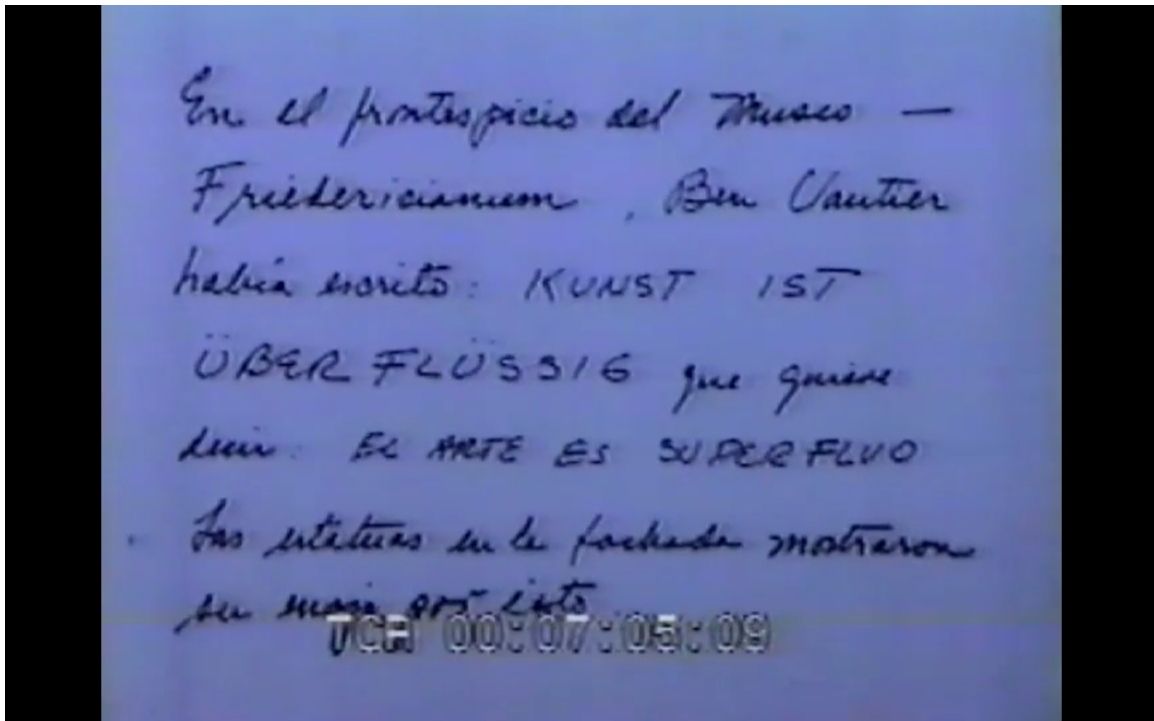 En el frontespicio del Museo —
Friedericianum, Ben Vautier
había escrito: KUNST IST
ÜBERFLÜSSIG que quiere
decir: EL ARTE ES SUPERFLUO
Las estatuas en la fachada mostraron
su enojo por ésto
TCR 00:07:05:09